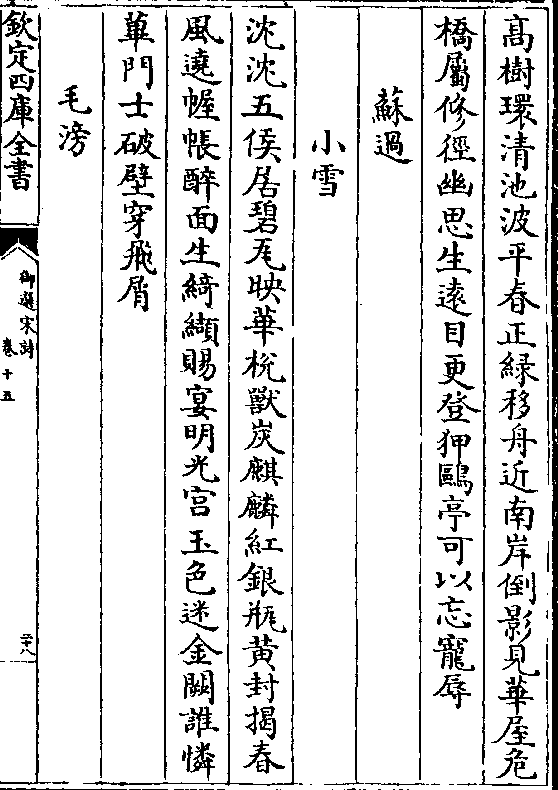 髙樹環清池波平春正緑移舟近南岸倒影見華屋危
橋屬修徑幽思生逺目更登狎鷗亭可以忘寵辱
蘇過
小雪
沈沈五侯居碧瓦映華梲獸炭麒麟紅銀瓶黄封揭春
風遶幄帳醉面生綺纈賜宴明光宫玉色迷金闕誰憐
蓽門士破壁穿飛屑
毛滂
欽定四庫全書
御選宋詩
卷十五
二十八